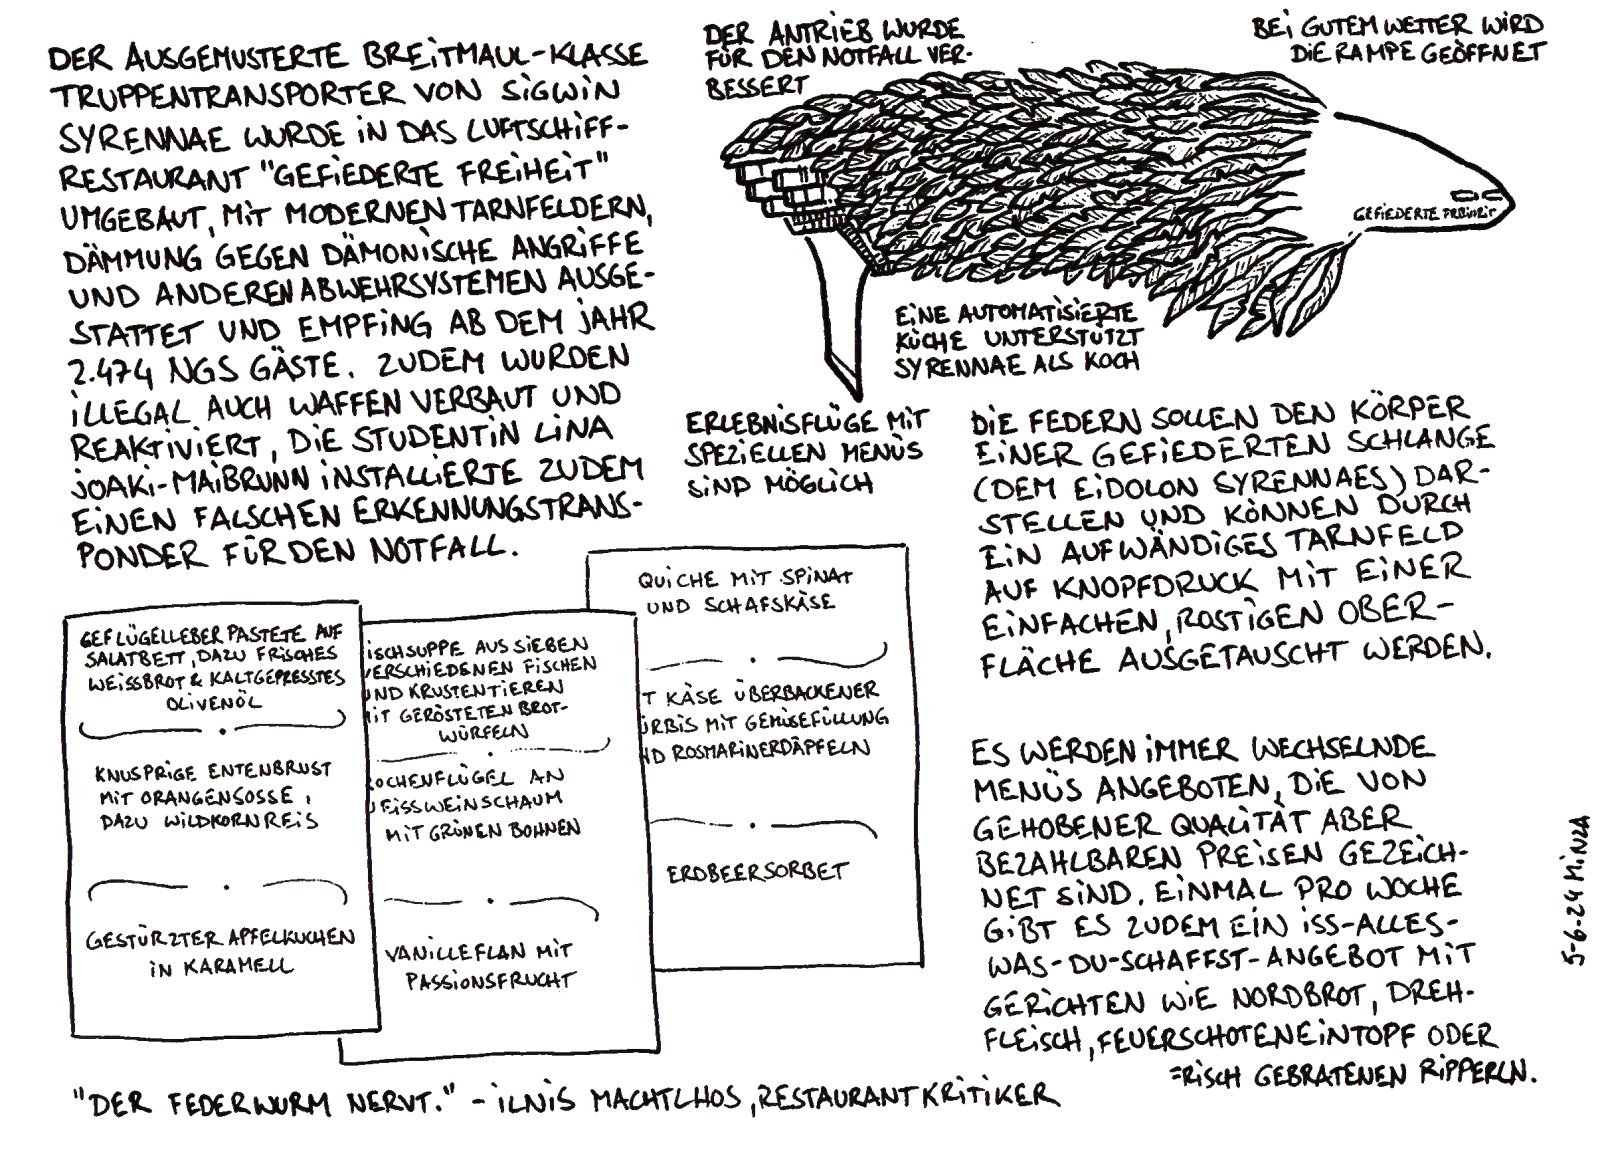 DER AUSGEMUSTERTE BREITMAUL-KLASSE
TRUPPENTRANSPORTER VON SIGWIN
SYRENNAE WURDE IN DAS LUFTSCHIFF-
RESTAURANT "GEFIEDERTE FREIHEIT"
UMGEBAUT, MIT MODERNEN TARNFELDERN,
DÄMMUNG GEGEN DÄMONISCHE ANGRIFFE
UND ANDEREN ABWEHRSYSTEMEN AUSGE-
STATTET UND EMPFING AB DEM JAHR
2.474 NGS GÄSTE. ZUDEM WURDEN
ILLEGAL AUCH WAFFEN VERBAUT UND
REAKTIVIERT, DIE STUDENTIN LINA
JOAKI-MAIBRUNN INSTALLIERTE ZUDEM
EINEN FALSCHEN ERKENNUNGSTRANS-
PONDER FÜR DEN NOTFALL.
DER ANTRIEB WURDE
FÜR DEN NOTFALL VER-
BESSERT
BEI GUTEM WETTER WIRD
DIE RAMPE GEÖFFNET
GEFIEDERTE FREIHEIT
EINE AUTOMATISIERTE
KÜCHE UNTERSTÜTZT
SYRENNAE ALS KOCH
ERLEBNISFLÜGE MIT
SPEZIELLEN MENÜS
SIND MÖGLICH
DIE FEDERN SOLLEN DEN KÖRPER
EINER GEFIEDERTEN SCHLANGE
(DEM EIDOLON SYRENNAES) DAR-
STELLEN UND KÖNNEN DURCH
EIN AUFWÄNDIGES TARNFELD
AUF KNOPFDRUCK MIT EINER
EINFACHEN, ROSTIGEN OBER-
FLÄCHE AUSGETAUSCHT WERDEN.
GEFLÜGELLEBER PASTETE AUF
SALATBETT, DAZU FRISCHES
WEISSBROT & KALTGEPRESSTES
OLIVENÖL
KNUSPRIGE ENTENBRUST
MIT ORANGENSOSSE,
DAZU WILDKORNREIS
GESTÜRZTER APFELKUCHEN
IN KARAMELL
ISCHSUPPE AUS SIEBEN
VERSCHIEDENEN FISCHEN
UND KRUSTENTIEREN
MIT GERÖSTETEN BROT-
WÜRFELN
ROCHENFLÜGEL AN
WEISSWEINSCHAUM
MIT GRÜNEN BOHNEN
VANILLEFLAN MIT
PASSIONSFRUCHT
QUICHE MIT SPINAT
UND SCHAFSKÄSE
T KÄSE ÜBERBACKENER
ÜRBIS MIT GEMÜSEFÜLLUNG
ND ROSMARINERDÄPFELN
ERDBEERSORBET
ES WERDEN IMMER WECHSELNDE
MENÜS ANGEBOTEN, DIE VON
GEHOBENER QUALITÄT ABER
BEZAHLBAREN PREISEN GEZEICH-
NET SIND. EINMAL PRO WOCHE
GIBT ES ZUDEM EIN ISS-ALLES-
WAS-DU-SCHAFFST-ANGEBOT MIT
GERICHTEN WIE NORDBROT, DREH-
FLEISCH, FEUERSCHOTENEINTOPF ODER
FRISCH GEBRATENEN RIPPERLN.
"DER FEDERWURM NERVT." - ILNIS MACHTLHOS, RESTAURANTKRITIKER
5-6-24 MINZA